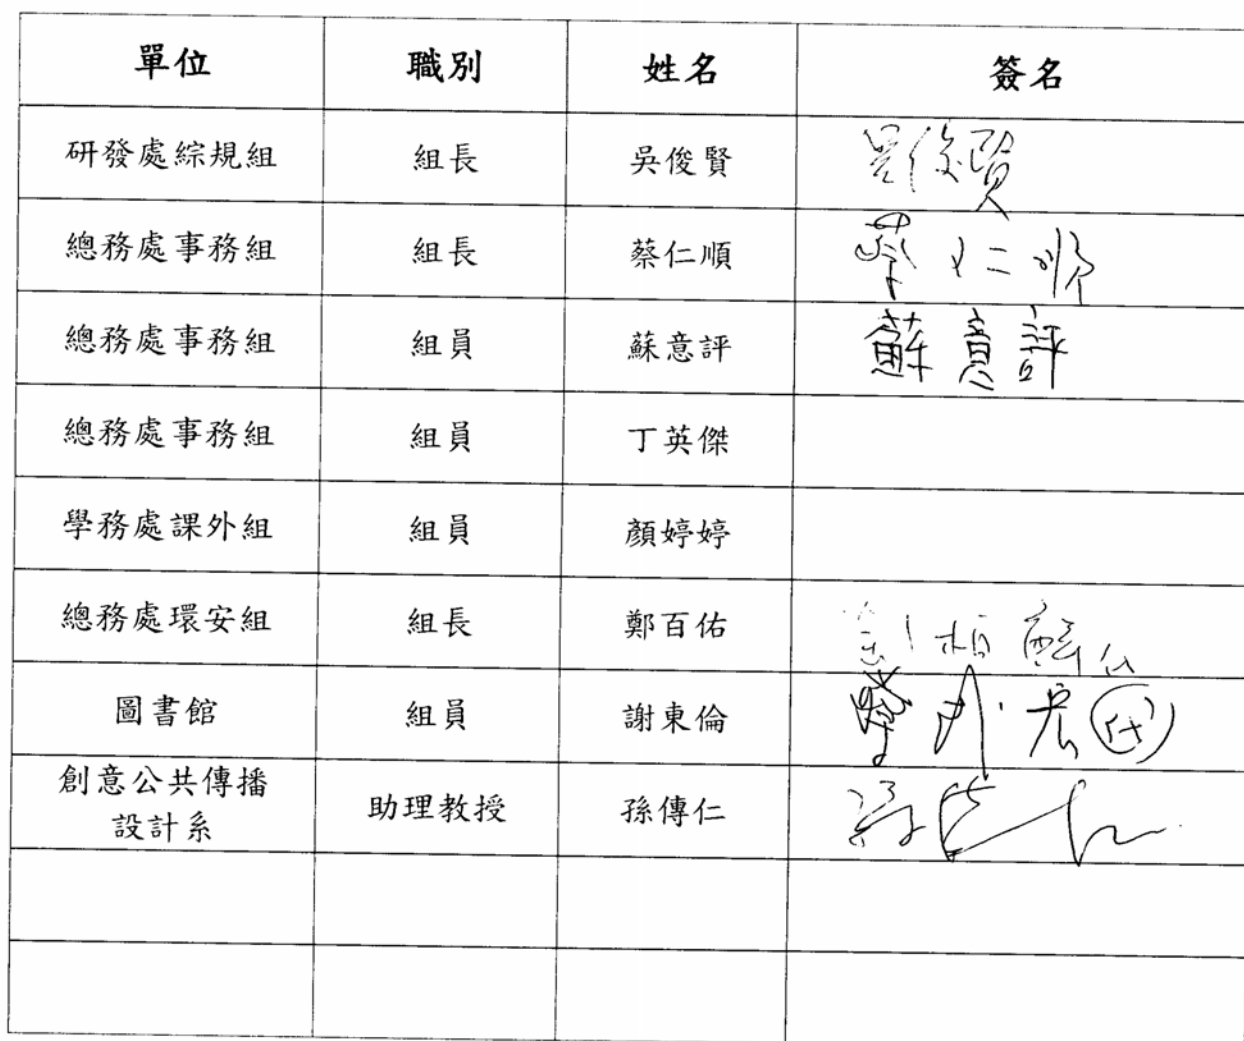 單位 職別 姓名 簽名
研發處綜規組 組長 吳俊賢 吳俊賢
總務處事務組 組長 蔡仁順 蔡仁順
總務處事務組 組員 蘇意評 蘇意評
總務處事務組 組員 丁英傑
學務處課外組 組員 顏婷婷
總務處環安組 組長 鄭百佑
圖書館 組員 謝東倫
創意公共傳播
設計系 助理教授 孫傳仁 孫傳仁